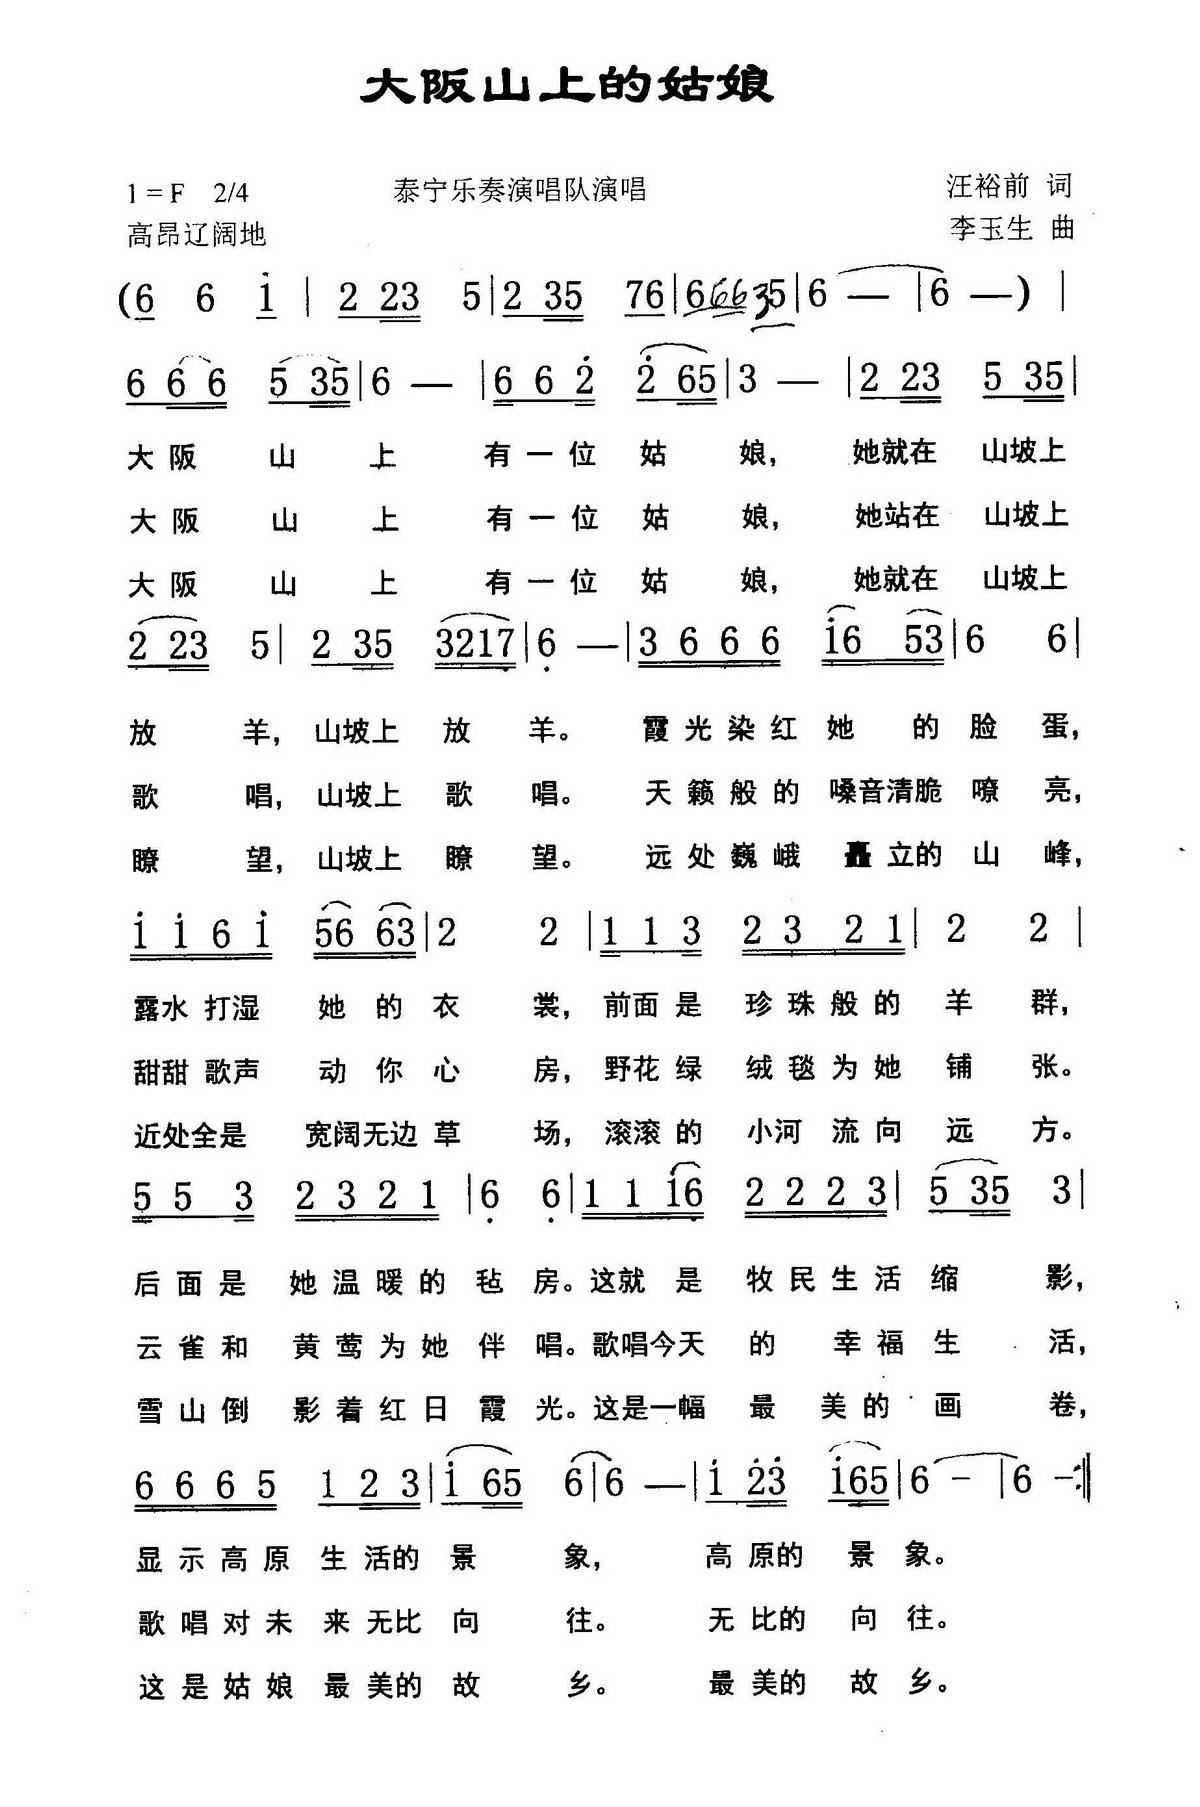 大阪山上的姑娘
1=F 2/4 泰宁乐奏演唱队演唱 汪裕前 词
高昂辽阔地 李玉生 曲
(6 6 i | 2 23 5 | 2 35 76 | 6 66 35 | 6 — | 6 —) |
6 6 6 5 35 | 6 — | 6 6 2 2 65 | 3 — | 2 23 5 35 |
大阪 山 上 有一位 姑 娘, 她就在 山坡上
大阪 山 上 有一位 姑 娘, 她站在 山坡上
大阪 山 上 有一位 姑 娘, 她就在 山坡上
2 23 5 | 2 35 3217 | 6 — | 3 6 6 6 i6 53 | 6 6 |
放 羊, 山坡上 放 羊。 霞光染红 她 的 脸 蛋,
歌 唱, 山坡上 歌 唱。 天籁般的 嗓音清脆 嘹 亮,
瞭 望, 山坡上 瞭 望。 远处巍峨 矗立的 山 峰,
i i 6 i 56 63 | 2 2 | 1 1 3 2 3 2 1 | 2 2 |
露水 打湿 她 的 衣 裳, 前面是 珍珠般的 羊 群,
甜甜 歌声 动 你 心 房, 野花绿 绒毯为她 铺 张。
近处全是 宽阔无边 草 场, 滚滚的 小河 流向 远 方。
5 5 3 2 3 2 1 | 6 6 | 1 1 i6 2 2 2 3 | 5 35 3 |
后面是 她温暖的 毡 房。这就 是 牧民生活 缩 影,
云雀和 黄莺为她 伴 唱。歌唱今天 的 幸福生 活,
雪山倒 影着红日 霞 光。这是一幅 最 美的 画 卷,
6 6 6 5 1 2 3 | i 65 6 | 6 — | i 23 i65 | 6 - | 6 -:‖
显示高原 生活的 景 象, 高原的 景 象。
歌唱对未 来无比 向 往。 无比的 向 往。
这是姑娘 最美的 故 乡。 最美的 故 乡。